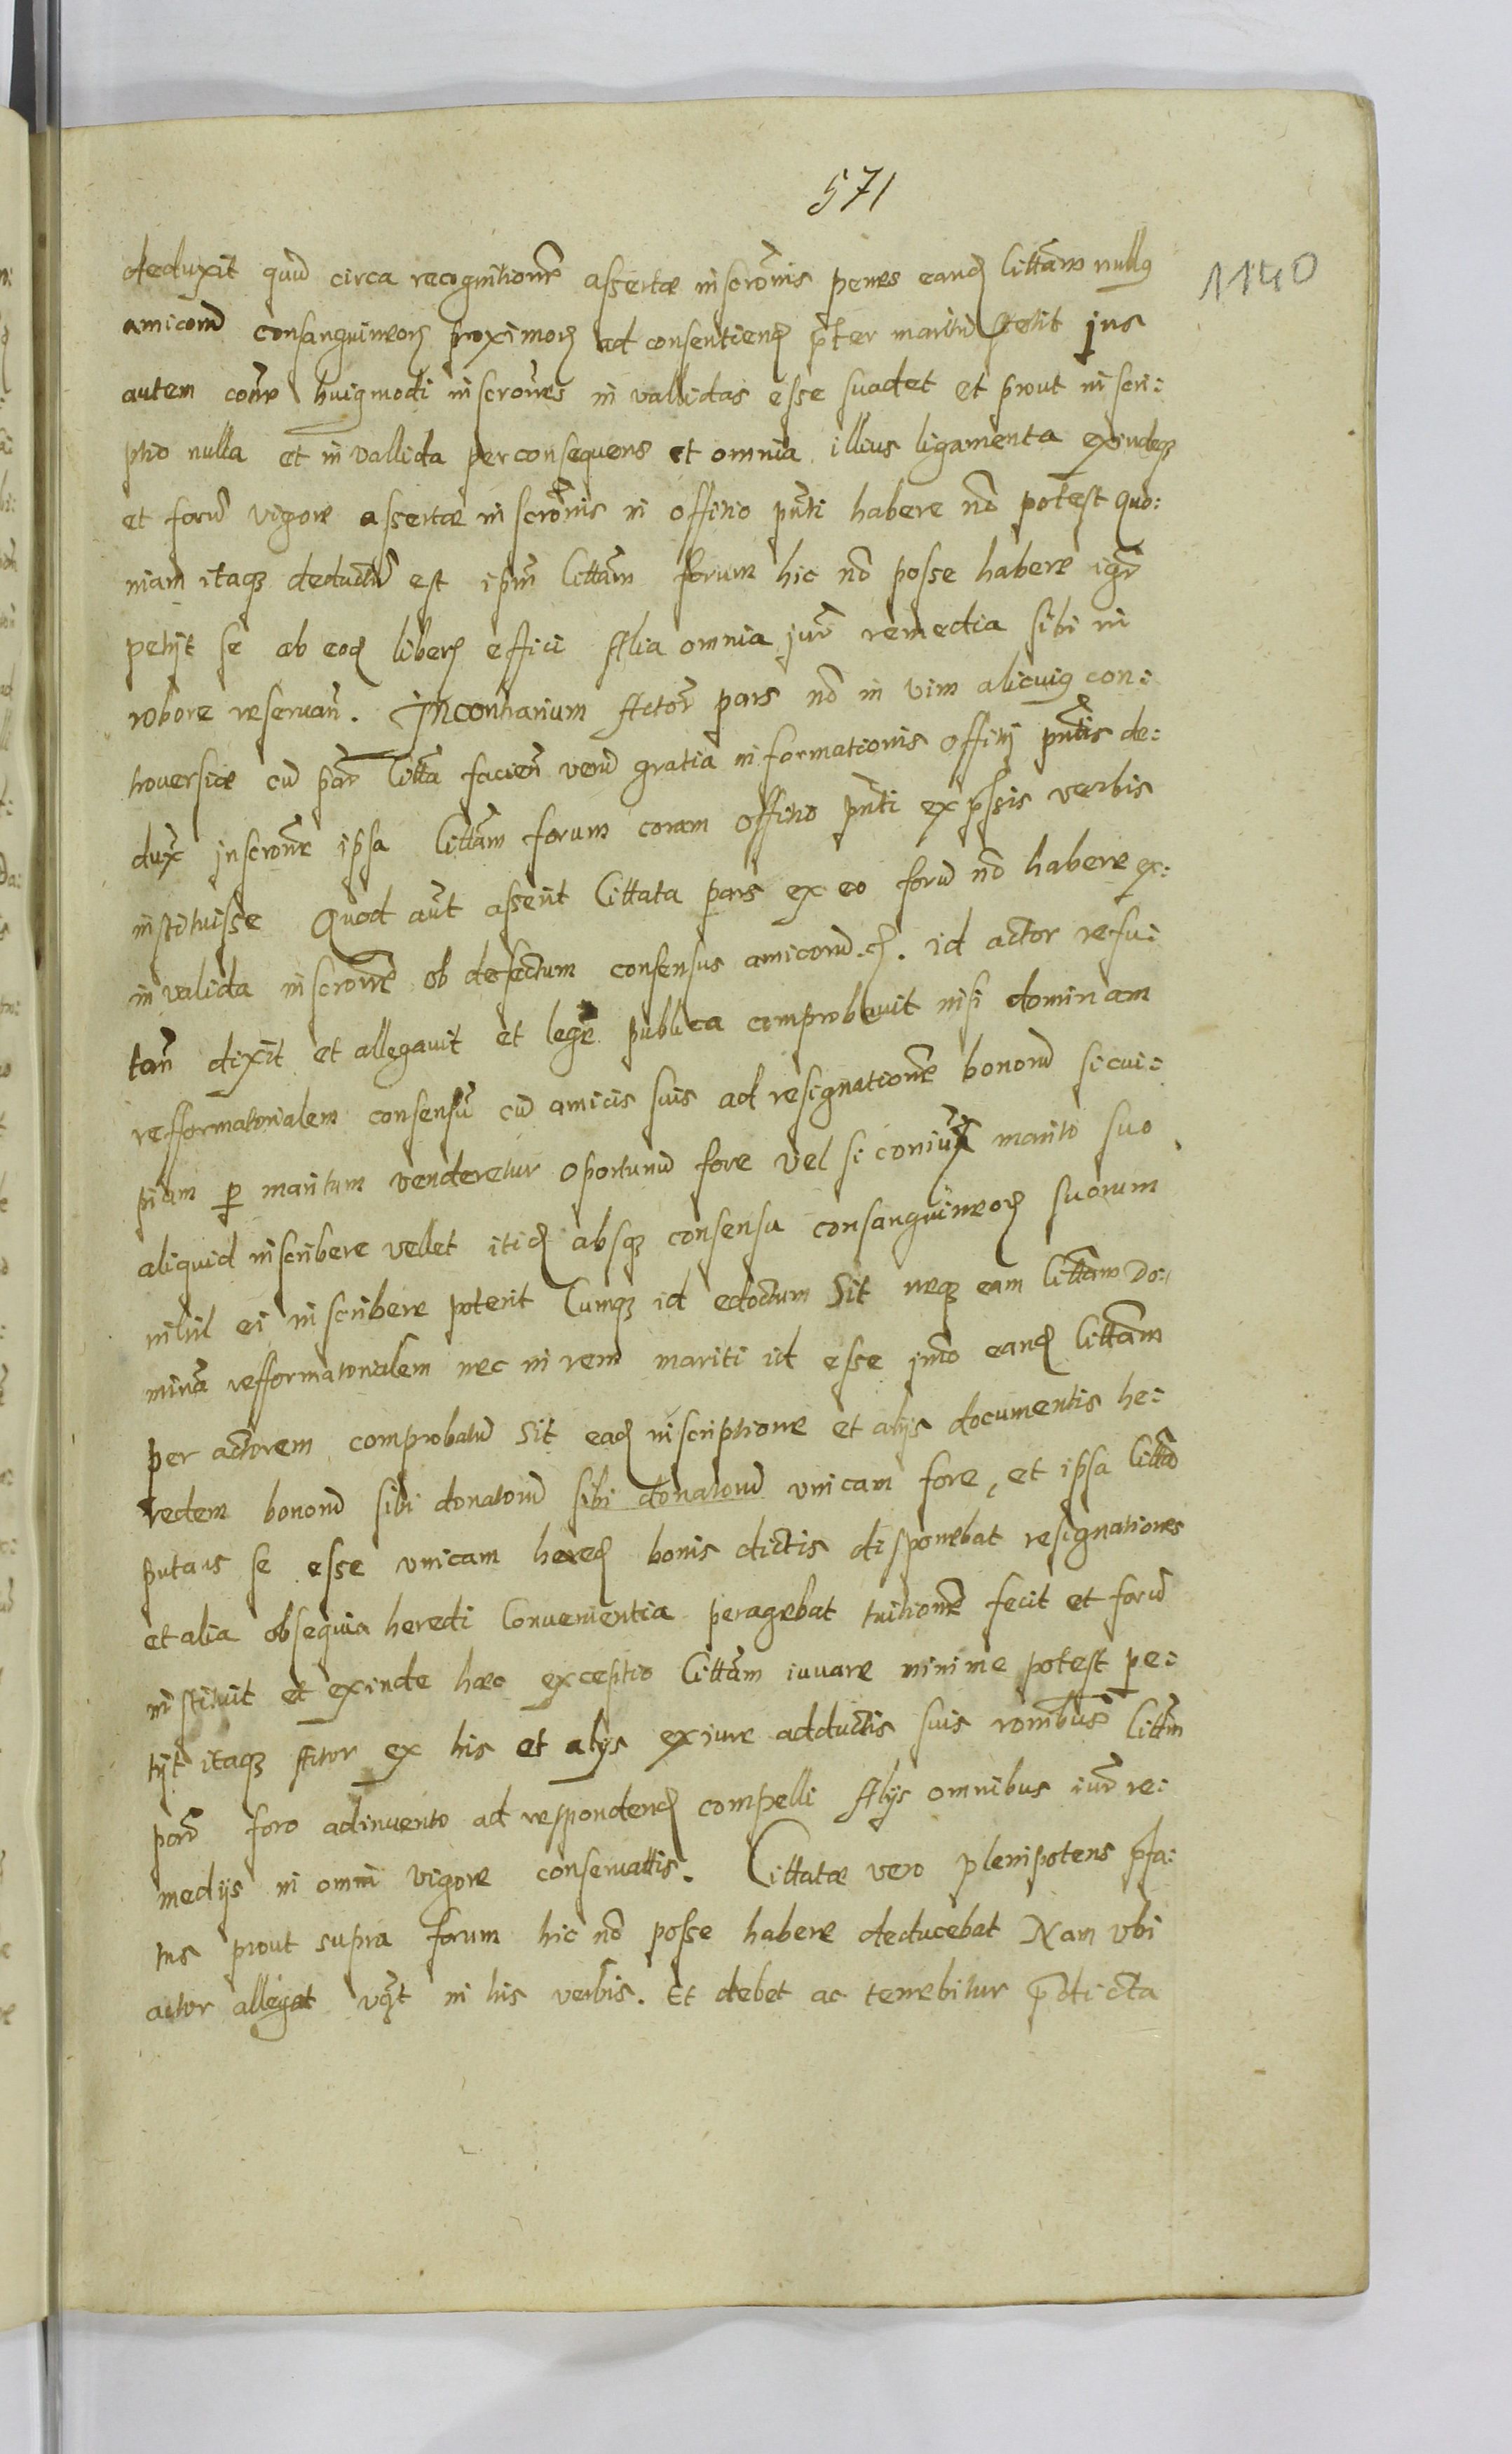 571
1140
deduxit quiā circa recognitionē assertæ inscrōnis penes eandꝫ Cittatam nullꝰ
amicorū consanguineorꝫ proximorꝫ ad consentiendꝫ p̄ter maritū stetit jus
autem cōme huiꝰmodi inscrōnes in vallidas esse suadet et prout inscri:
ptio nulla et in vallida per consequens et omnia illius ligamenta exindeqꝫ
et forū vigore assertæ inscrōnis in offitio pn̄ti habere nō potest quo:
niam itaqꝫ deductū est ip̄m Cittatā forum hic nō posse habere igr̄
petyt se ab eodꝫ liberꝫ effici Alia omnia jur̄ remedia sibi in
robore reservan̄. In contrarium Actor̄ pars nō in vim alicuiꝰ con:
troversiæ cū par̄ Citta facien̄ verū gratia informationis offitij pn̄tis de:
dux̄ inscrōne ipsa Cittatam forum coram offitio pn̄ti expssis verbis
instituisse Quod aūt asserit Cittata pars ex eo forū nō habere ex:
invalida inscrōne ob defectum consensus amicorū .ꝫ. id actor refu:
tan̄ dixit et allegavit et lege publica comprobavit nisi dominam
refformatorialem consensū cū amicis suis ad resignationē bonorū si cui:
piam ꝑ maritum venderetur oportunū fore vel si coniux marito suo
aliquid inscribere vellet itidꝫ absqꝫ consensu consanguineorꝫ suorum
nihil ei inscribere poterit Cumqꝫ id edoctum Sit neqꝫ eam Cittatam Do:
minā refformatorialem nec in rem mariti id esse jmo eandꝫ Cittatam
per actorem comprobatū sit eadꝫ inscriptione et alijs documentis he:
redem bonorū sibi donatorū sibi donatorū unicam fore, et ipsa Citta
putans se esse unicam heredꝫ bonis dictis disponebat resignationes
et alia obsequia heredi Convenientia peragebat tuitionē fecit et forū
instituit et exinde hæc exceptio Cittatam iuvare minime potest pe:
tijt itaqꝫ Actor ex his et alys ex iure adductis suis ronibus Cittam
par̄ foro adinvento ad respondendꝫ compelli Alijs omnibus iur̄ re:
medijs in omni vigore conservattis. Cittatæ vero plenipotens p̄fa:
tus prout supra forum hic nō posse habere deducebat Nam vbi
actor allegat in his verbis. Et debet ac tenebitur p̄dicta